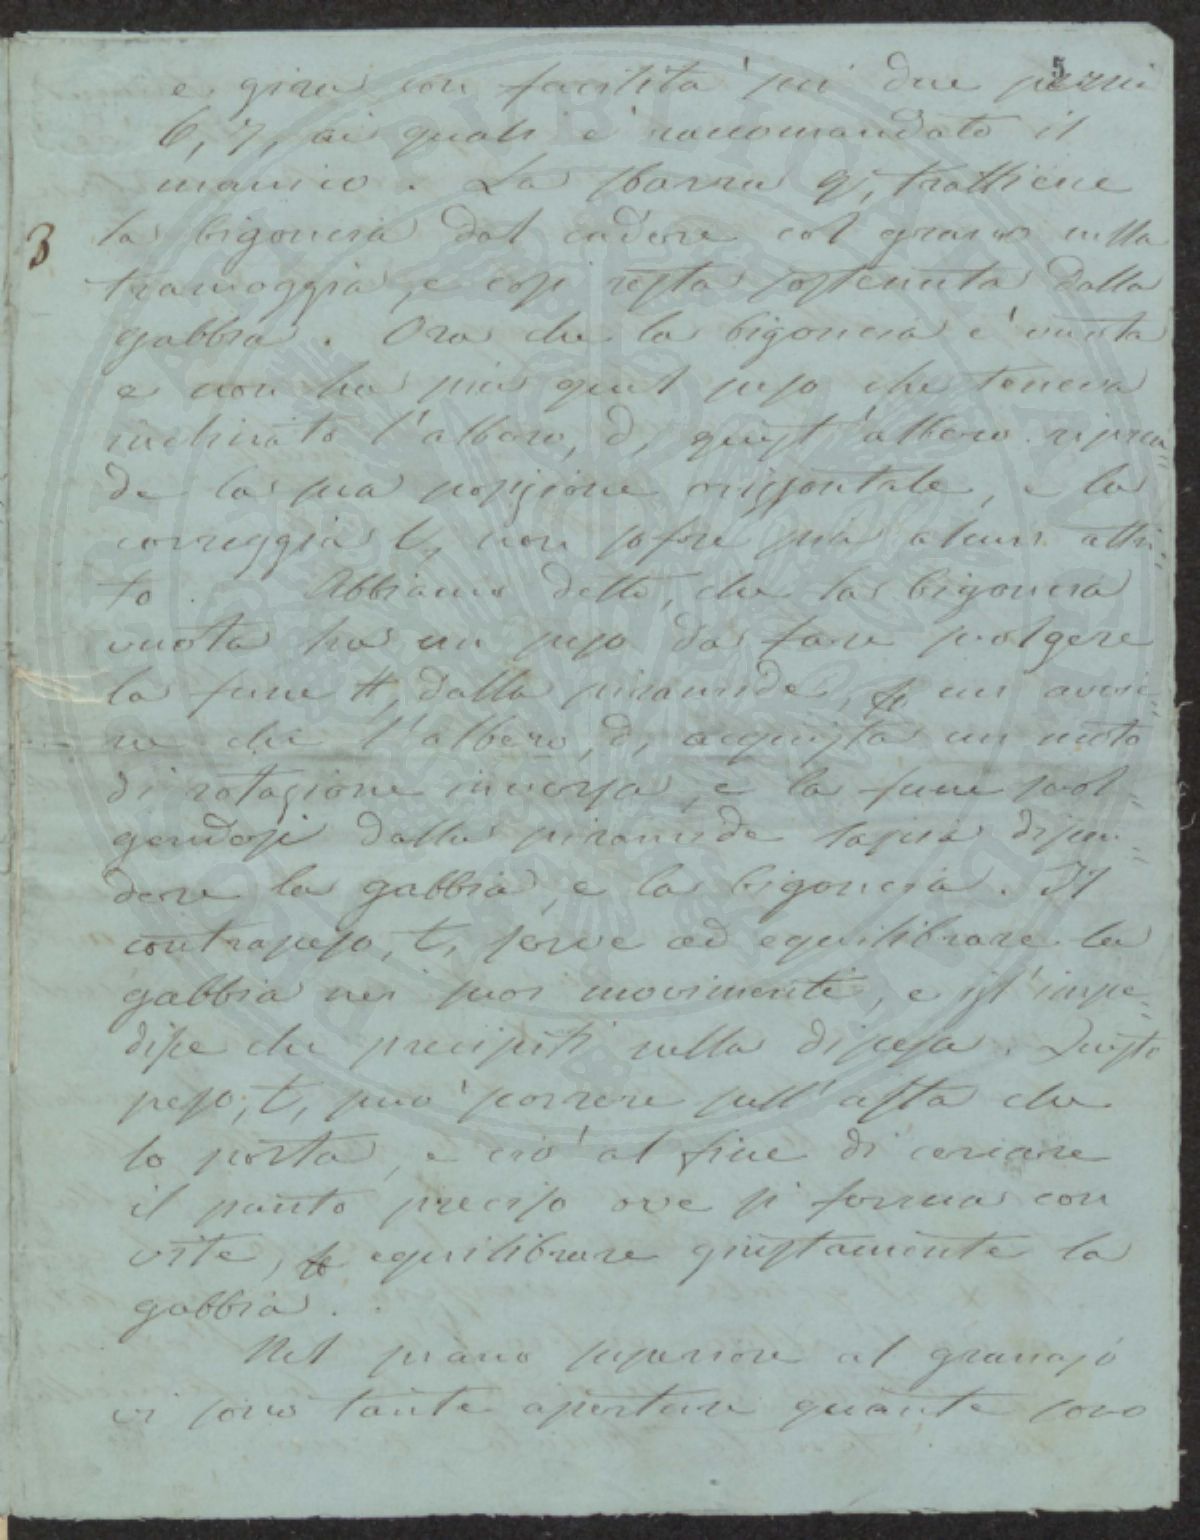 5
e gira con facilità sui due perni
6, 7, ai quali è raccomandato il
manico. La sbarra q, trattiene
3
la bigoncia dal cadere col grano nella
tramoggia, e così resta sostenuta dalla
gabbia. Ora che la bigoncia è vuota
e non ha più quel peso che teneva
inclinato l'albero, d, quest'albero ripren=
de la sua posizione orizzontale, e la
correggia t, non sofre più alcun attri=
to. Abbiamo detto, che la bigoncia
vuota ha un peso da fare svolgere
la fune #, dalla piramide, un avvi=
ne che l'albero, d, acquista un moto
di rotazione inversa, e la fune svol=
gendosi dalla piramide lascia discen=
dere la gabbia, e la bigoncia. Il
contrapeso, t, serve ad equilibrare la
gabbia nei suoi movimenti, e gl'impe=
disce che precipiti nella discesa. Questo
peso, t, può scorrere sull'asta che
lo porta, e ciò al fine di cercare
il punto preciso ove si ferma con
vite, equilibrare giustamente la
gabbia.
Nel piano superiore al granajo
vi sono tante aperture quante sono